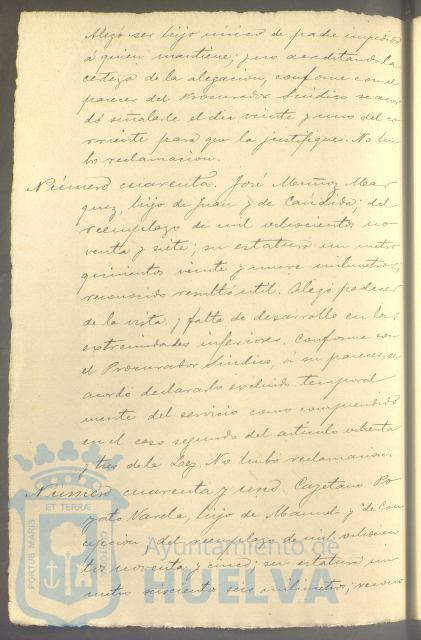 Alegó ser hijo único de padre impedido
á quien mantiene; y no acreditando la
certeza de la alegacion, conforme con el
parecer del Procurador Síndico se acor
dó señalarle el dia veinte y uno del co
rriente para que la justifique. No hu
bo reclamacion.
Número cuarenta. José Muñoz Mar
quez, hijo de Juan y de Candida; del
reemplazo de mil ochocientos no
venta y siete; su estatura un metro
quinientos veinte y nueve milimetros,
reconocido resultó útil. Alegó padecer
de la vista, y falta de desarrollo en las
extremidades inferiores. Conforme con
el Procurador Síndico, ó su parecer, se
acordó declararlo excluido temporal
mente del servicio como comprendido
en el caso segundo del artículo ochenta
y tres de la Ley. No hubo reclamacion.
Número cuarenta y uno. Cayetano
Varela, hijo de Manuel y de Con
cepcion; del reemplazo de mil ochocien
tos noventa y cinco; su estatura un
metro seiscientos seis milimetros; recono
PORTUS MARIS ET TERRÆ CUSTODIA
Ayuntamiento de
HUELVA